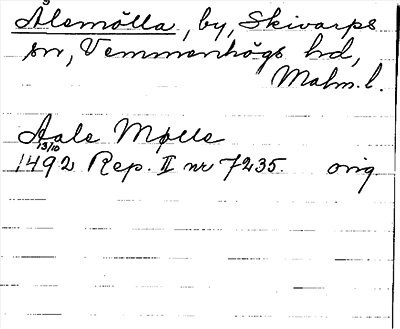 Ålemölla, by, Skivarps
sn, Vemmenhögs hd,
Malm. l.
Aale Mølle
13/10
1492 Rep. II nr 7235. orig